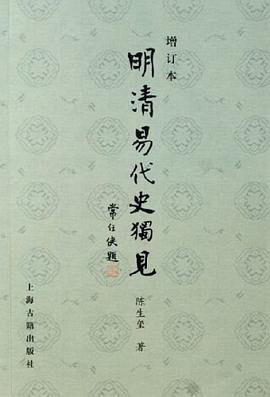 增订本
明清易代史獨見
常任俠題
陈生玺 著
上海古籍出版社